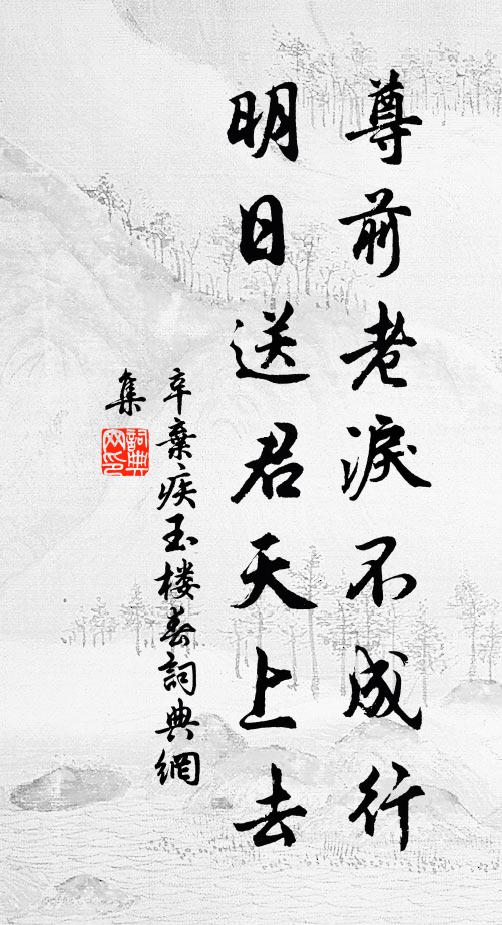 尊前老淚不成行
明日送君天上去
辛棄疾玉楼春詞典網
集
詞典網印